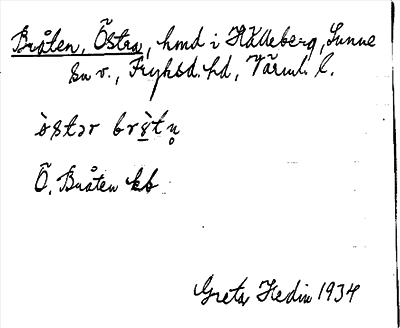 Bråten, Östra, hmd i Hälleberg, Sunne
sn v., Fryksd. hd, Värml. l.
östər brs̀̀tn̥
Ö. Bråten kb
Greta Hedin 1934